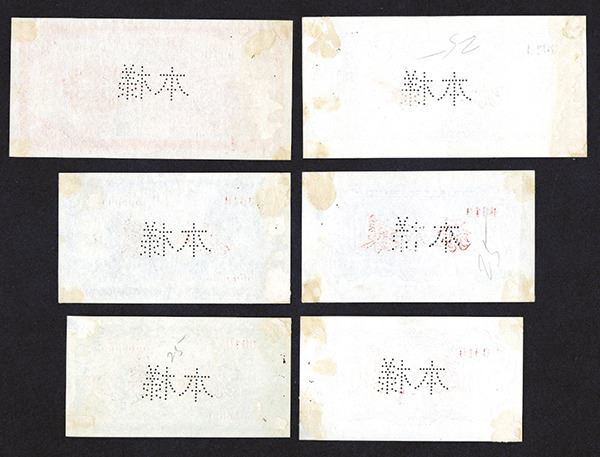 樣本
樣本
樣本
樣本
25
25
樣本
樣本